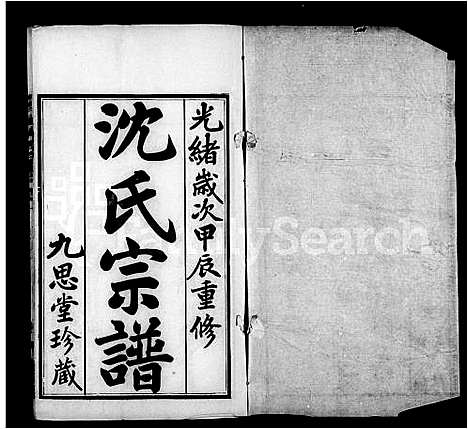 光緒歲次甲辰重修
沈氏宗譜
九思堂珍藏